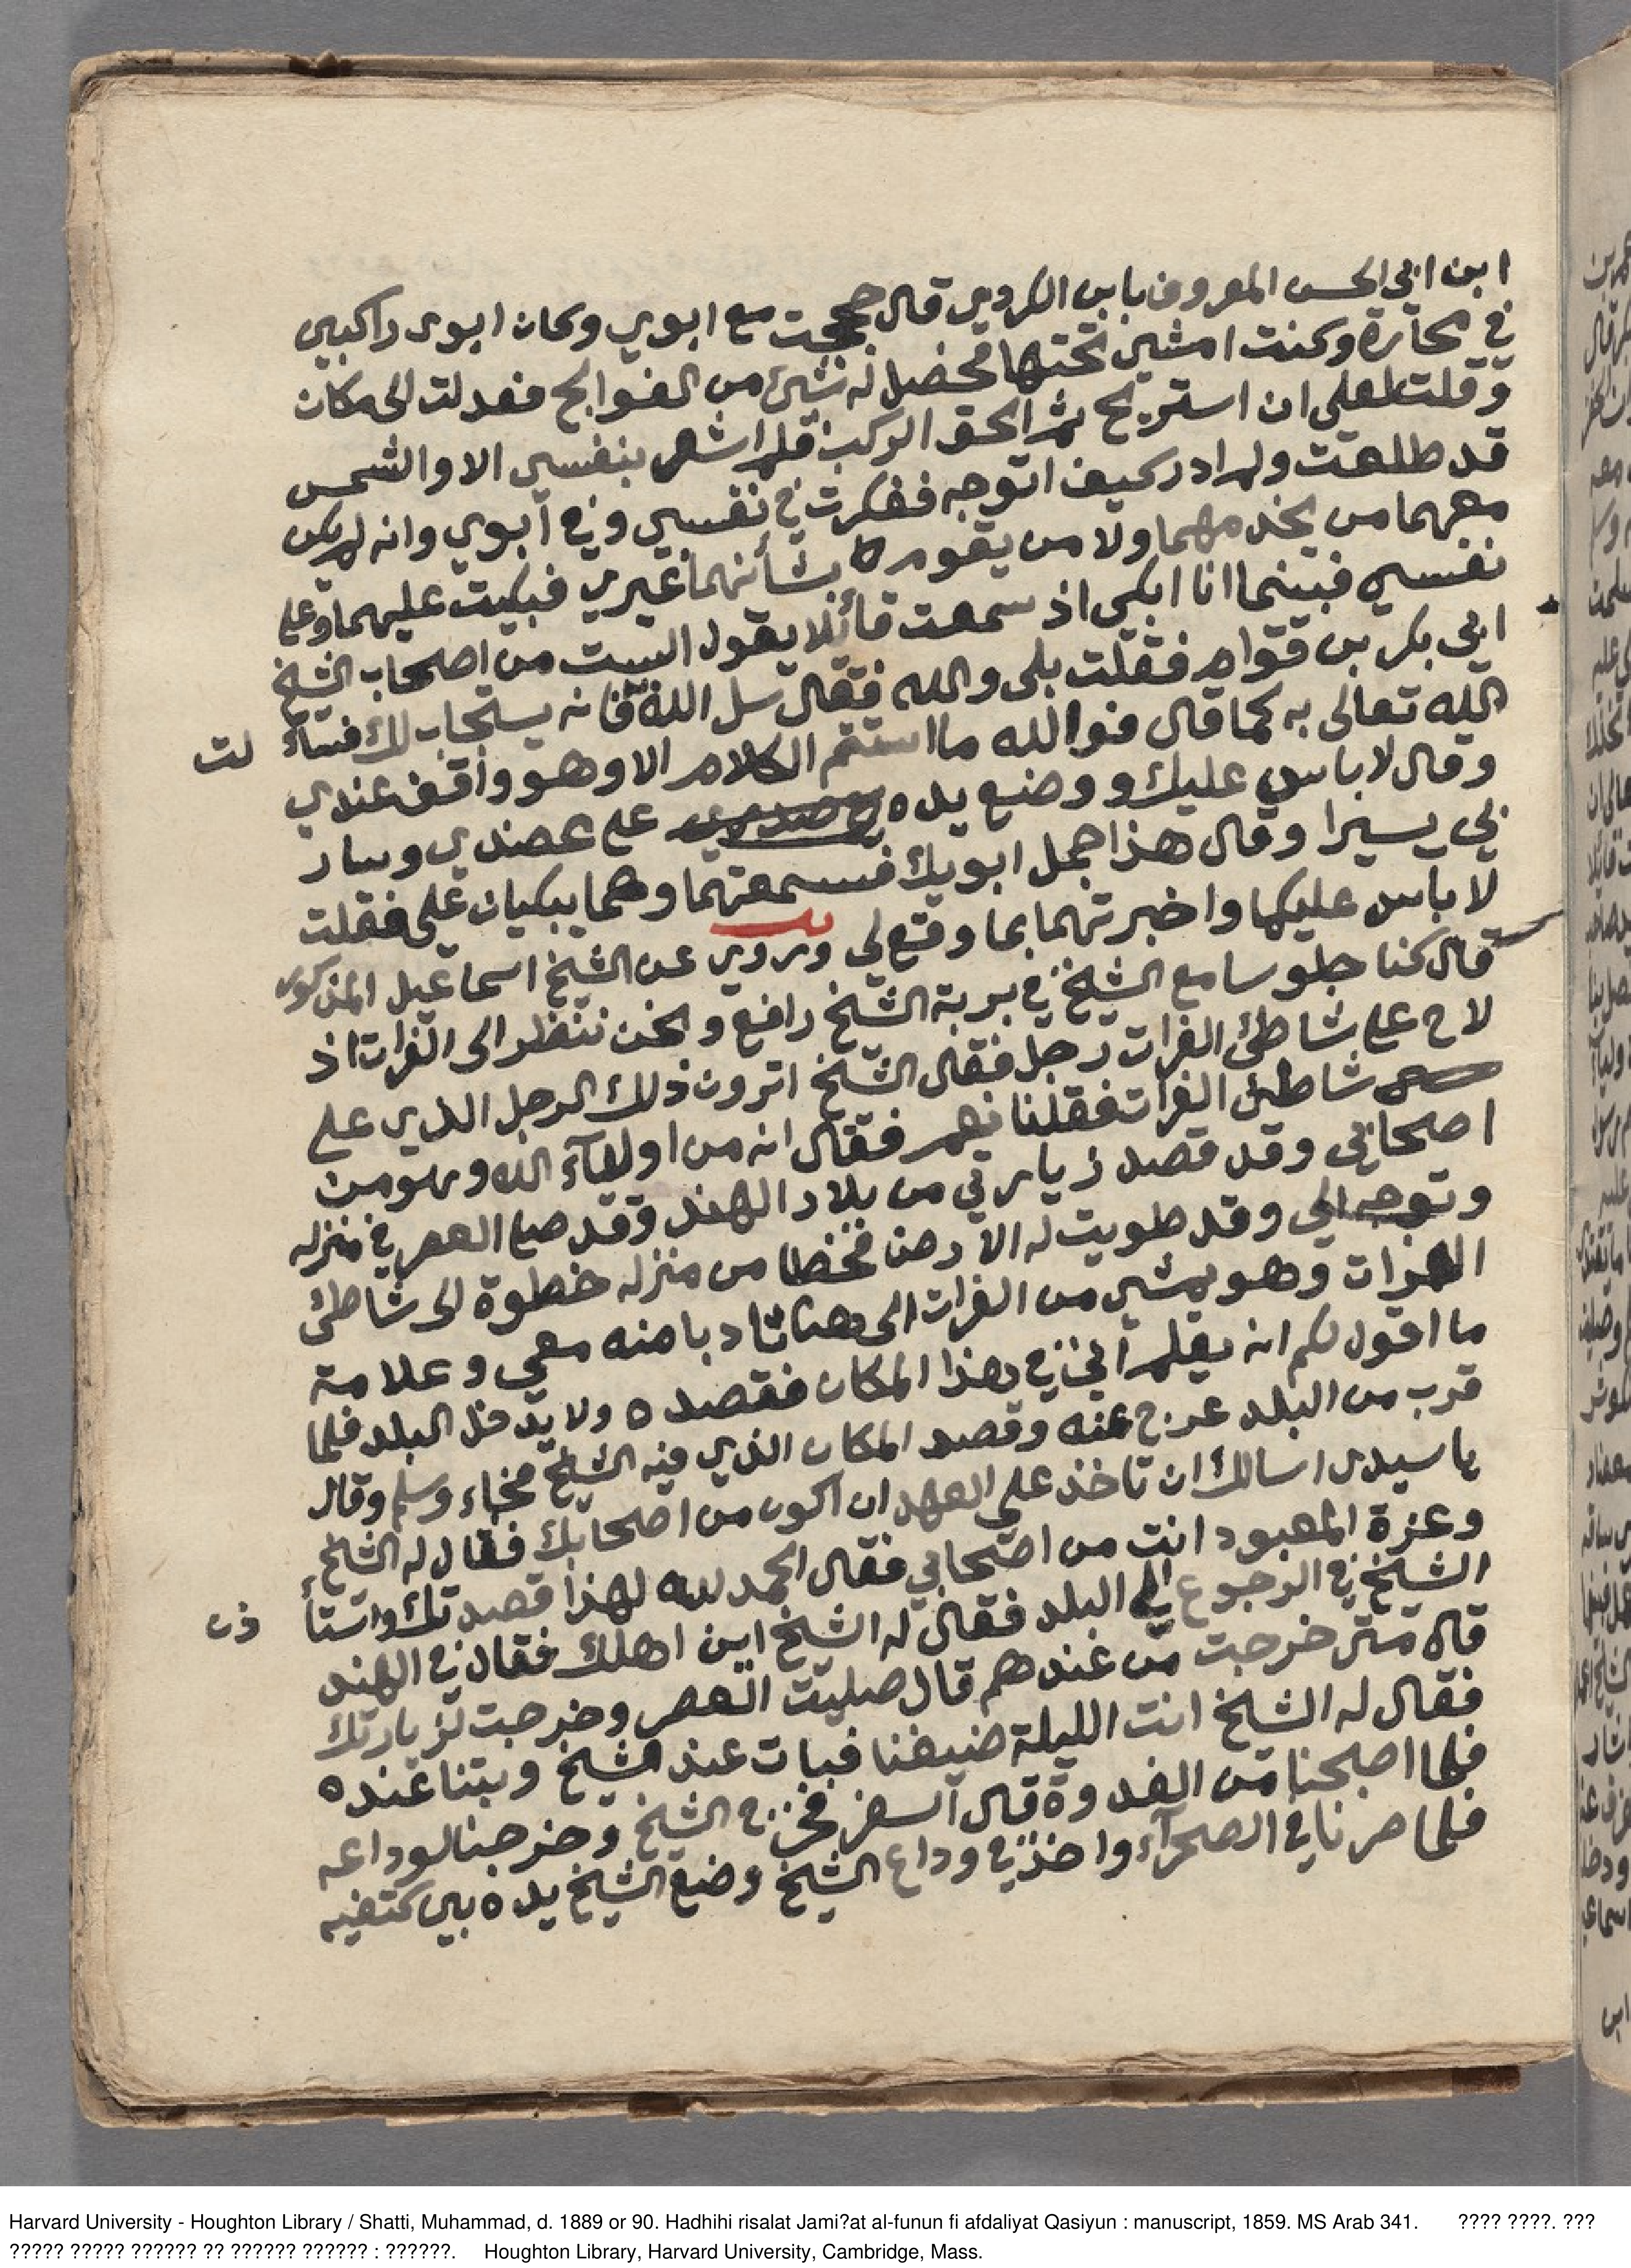 ابن ابي الحسن المعروف بابن الكردي قال حججت مع ابوي وكان ابوى راكبين
في محارة وكنت امشي تحتها فحصل له شيئ من القوالج فعدلت الى مكان
وقلت لعلي ان استريح ثم الحق الركب فلم اشعر بنفسي الا والشمس
قد طلعت ولم ادر كيف اتوجه ففكرت في نفسي وفي أبوي وانه لم يكن
معهما من يخدمهما ولا من يقوم بشأنهما غيري فبكيت عليهما وعلى
نفسي فبينما انا ابكي اذ سمعت قائلا يقول الست من اصحاب الشيخ
ابي بكر بن قوام فقلت بلى والله فقال سل الله فانه يستجاب لك فسألت
الله تعالى به كما قال فوالله ما استتم الكلام الا وهو واقف عندي
وقال لا باس عليك ووضع يده على عضدي وسار
بي يسيرا وقال هذا جمل ابويك فسمعتهما وهما يبكيان علي فقلت
لا باس عليكما واخبرتهما بما وقع لي وروي عن الشيخ اسماعيل المذكور
قال كنا جلوسا مع الشيخ في بربة الشيخ رافع ونحن ننظر الى الفرات اذ
لاح على شاطئ الفرات رجل فقال الشيخ اترون ذلك الرجل الذي على
شاطئ الفرات فقلنا نعم فقال انه من اولياء الله وهو من
اصحابي وقد قصد زيارتي من بلاد الهند وقد صلى العصر في منزله
وتوجه الي وقد طويت له الارض فخطا من منزله خطوة الى شاطئ
الفرات وهو يمشي من الفرات الى هنا تادبا منه معي وعلامة
ما اقول لكم انه يعلم اني في هذا المكان فقصده ولا يدخل البلد فلما
قرب من البلد عرج عنه وقصد المكان الذي فيه الشيخ فجاء وسلم وقال
يا سيدى اسالك ان تاخذ علي العهد ان اكون من اصحابك فقال له الشيخ
وعزة المعبود انت من اصحابي فقال الحمد لله لهذا قصدتك واستأذن
الشيخ في الرجوع الى البلد فقال له الشيخ اين اهلك فقال في الهند
قال متى خرجت من عندهم قال صليت العصر وخرجت لزيارتك
فقال له الشيخ انت الليلة ضيفنا فبات عند الشيخ وبتنا عنده
فلما اصبحنا من الغدوة قال السفر فخرج الشيخ وخرجنا لوداعه
فلما صرنا في الصحرآء واخذ في وداع الشيخ وضع الشيخ يده بين كتفيه
Harvard University - Houghton Library / Shatti, Muhammad, d. 1889 or 90. Hadhihi risalat Jami?at al-funun fi afdaliyat Qasiyun : manuscript, 1859. MS Arab 341. ???? ????. ???
????? ????? ?????? ?? ?????? ?????? : ??????. Houghton Library, Harvard University, Cambridge, Mass.